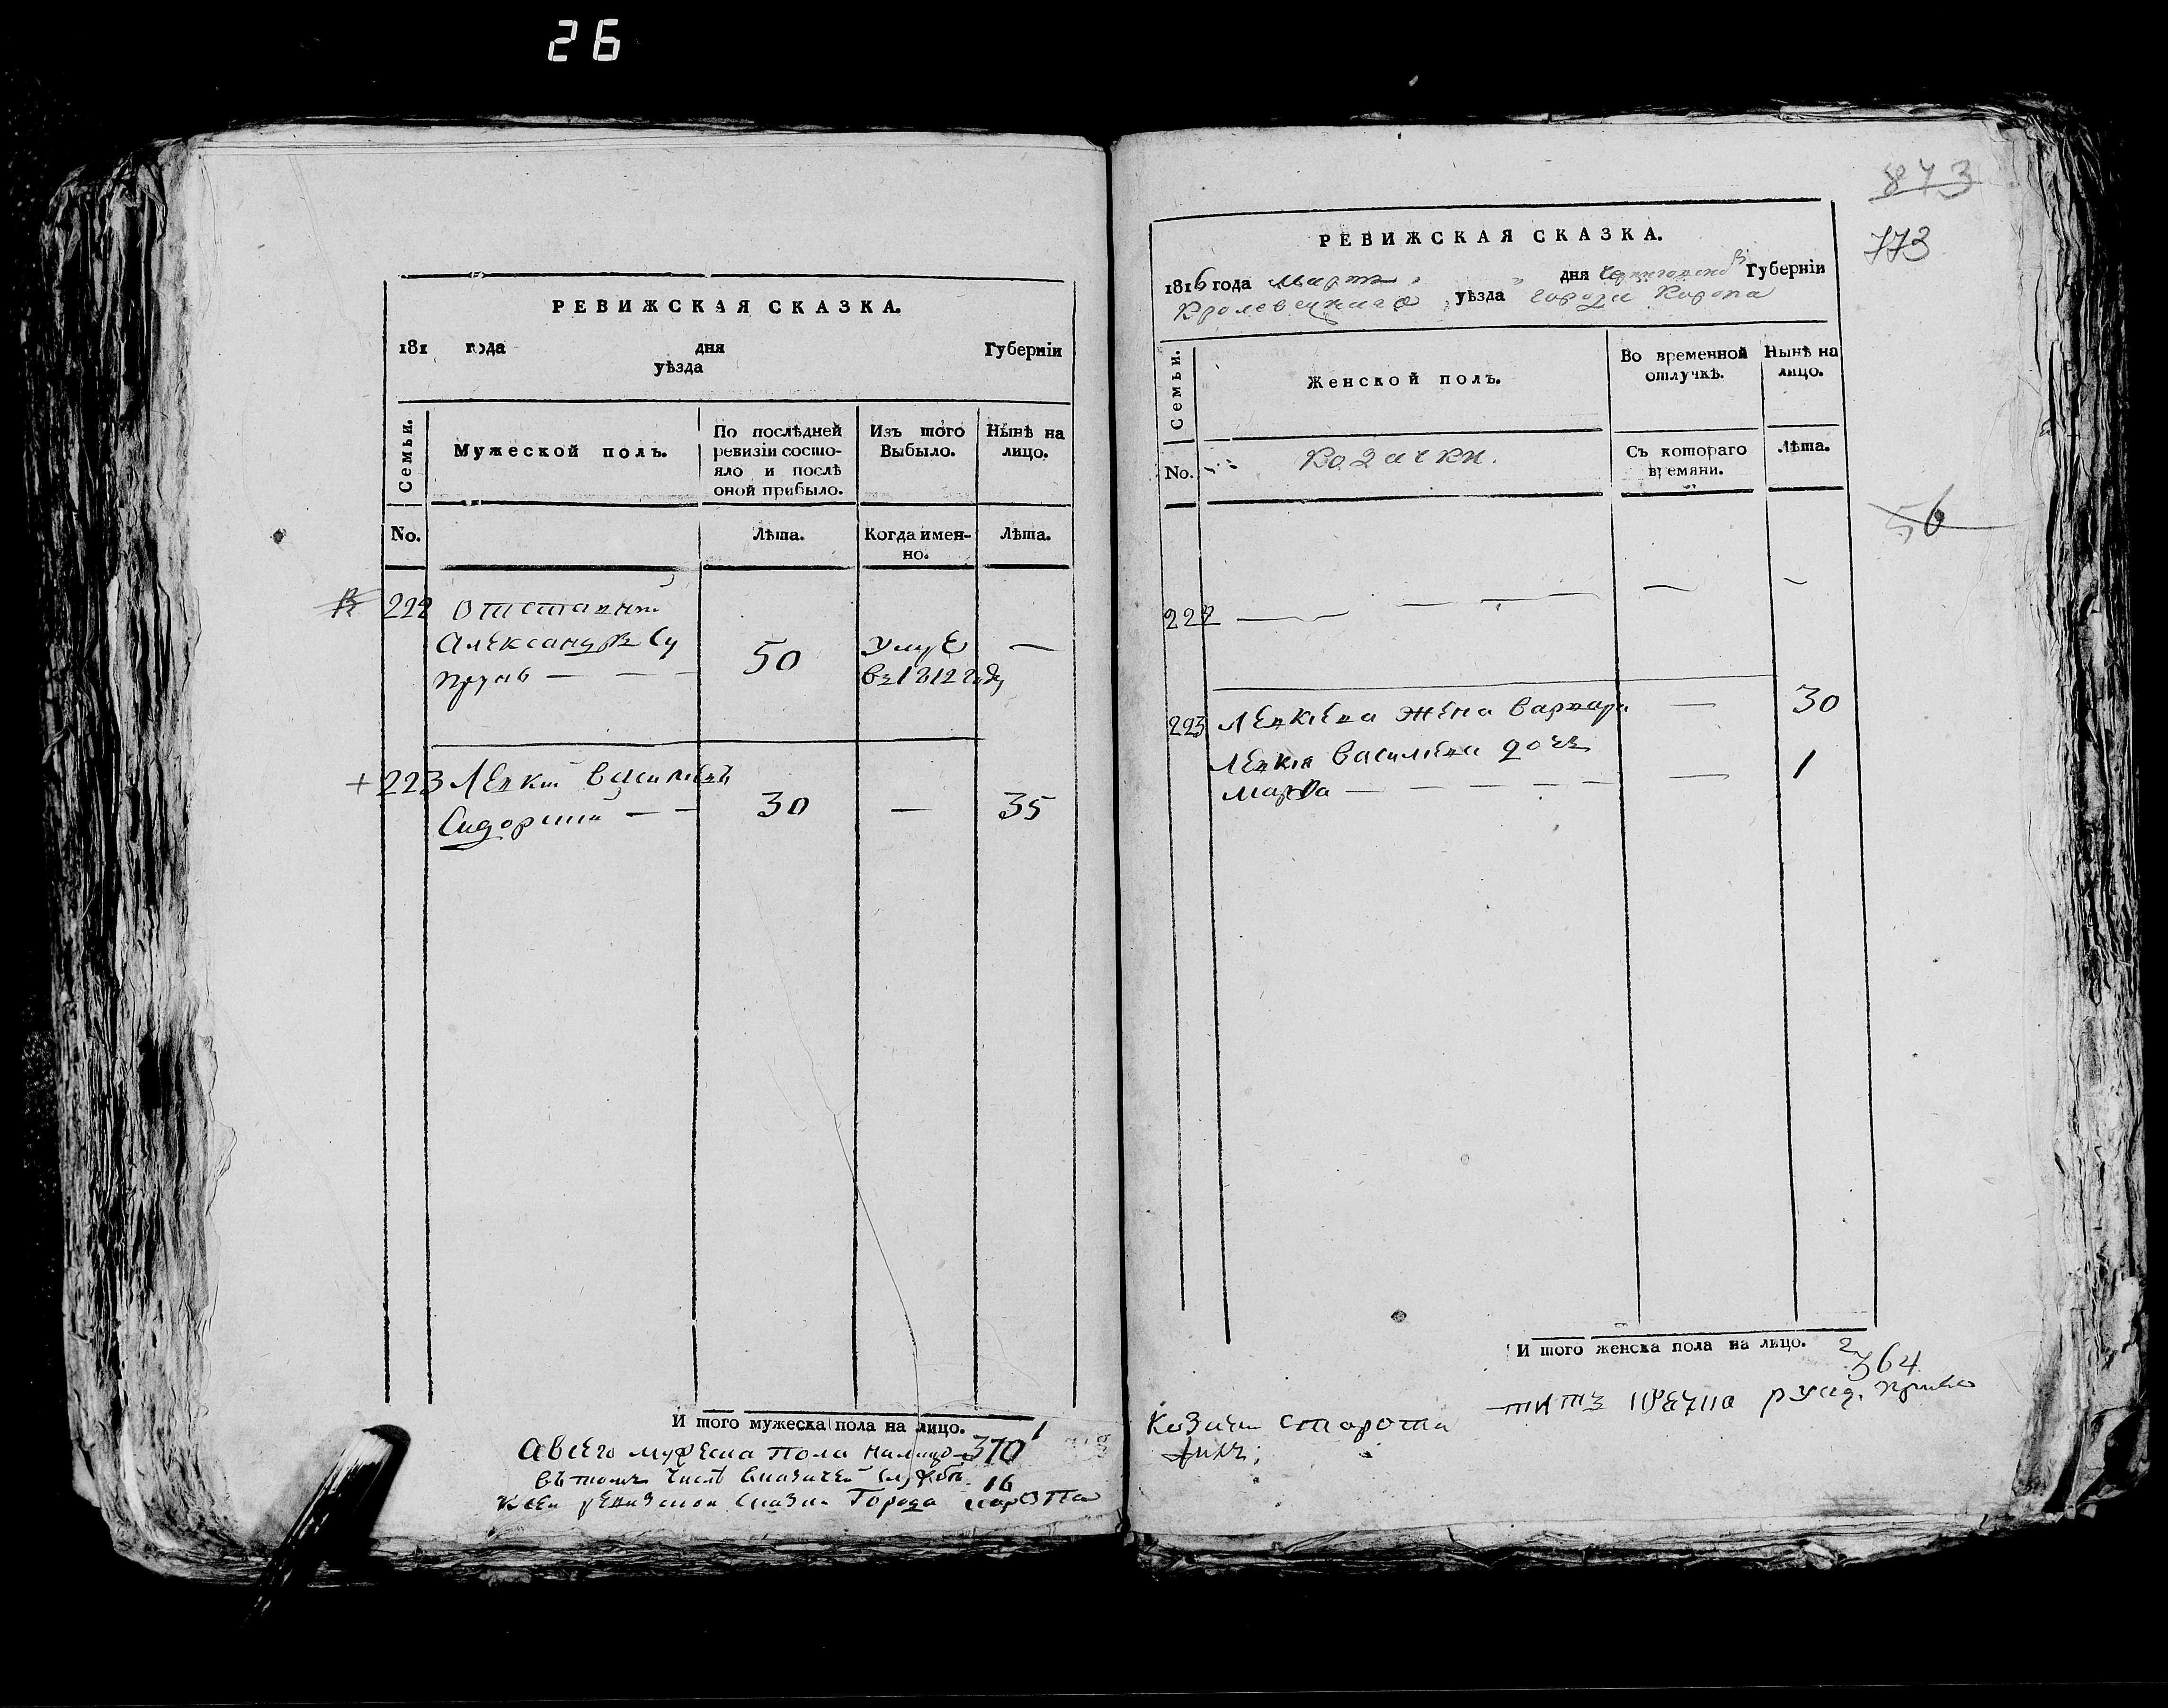 26
РЕВИЖСКАЯ СКАЗКА.
181 года дня Губерніи
уѣзда
Семьи.
Мужеской полъ.
По послѣдней ревизіи состояло и послѣ оной прибыло.
Изъ того Выбыло.
Нынѣ на лицо.
No.
Лѣта.
Когда именно.
Лѣта.
222 Отставный
Александръ Су
прунъ — — — 50 умре въ 1812 году —
+ 223 Левкій Васильевъ
Сидорший — — 30 — 35
И того мужеска пола на лицо. 1
а всего мужеска пола налицо 370
въ томъ числѣ службѣ 16
К сей ревизской сказки Города Коропа
873
773
РЕВИЖСКАЯ СКАЗКА.
1816 года Марта дня Черниговской Губерніи
Кролевецкаго уѣзда города Коропа
Семьи.
Женской полъ.
Во временной отлучкѣ.
Нынѣ на лицо.
No.
Козачки.
Съ котораго времяни.
Лѣта.
56
222 — — — — — —
223 Левкіева жена Варвара — 30
Левкія Васильева дочь
Марфа — — — — — — 1
И того женска пола на лицо. 2
364
козачи староста